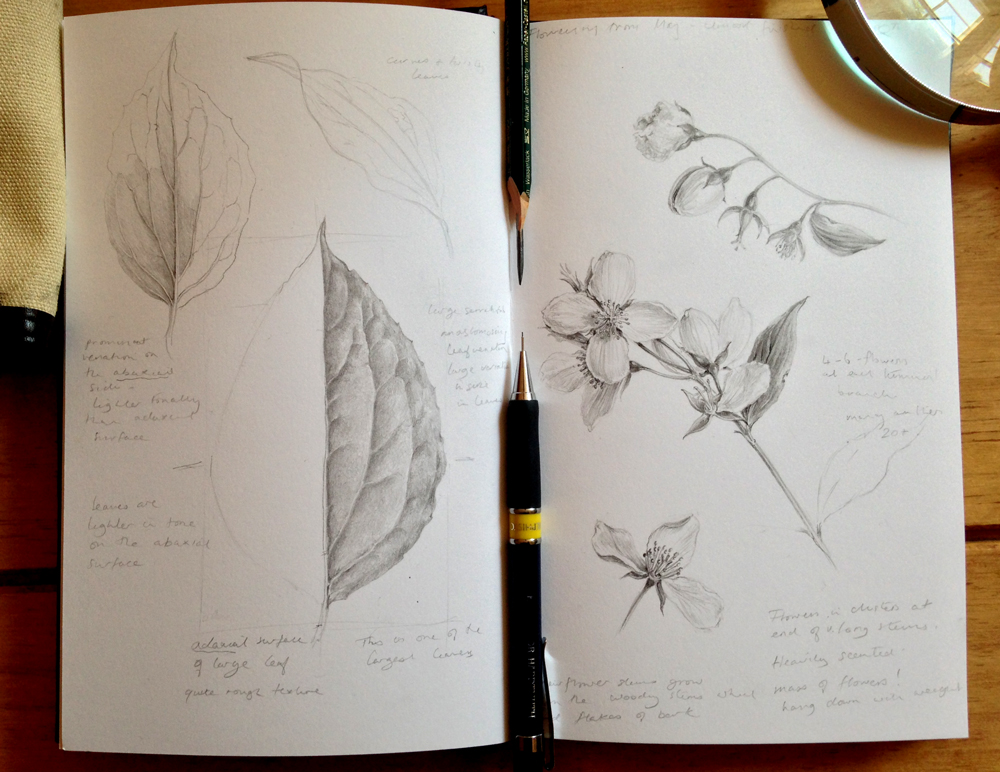 curved + twisty
leaves
prominent
venation on
the abaxial
side -
lighter tonally
than adaxial
surface
leaves are
lighter in tone
on the abaxial
surface
large
leaf
large
in leaves
adaxial surface
of large leaf
quite rough texture
This is one of the
largest leaves
Flowering from May -
4-6-flowers
at each terminal
branch
many
20+
Flowers in clusters at
end of v. long stems.
Heavily scented.
mass of flowers!
hang down with weight
flower stems grow
the woody stems which
flakes of bark
Made in Germany www